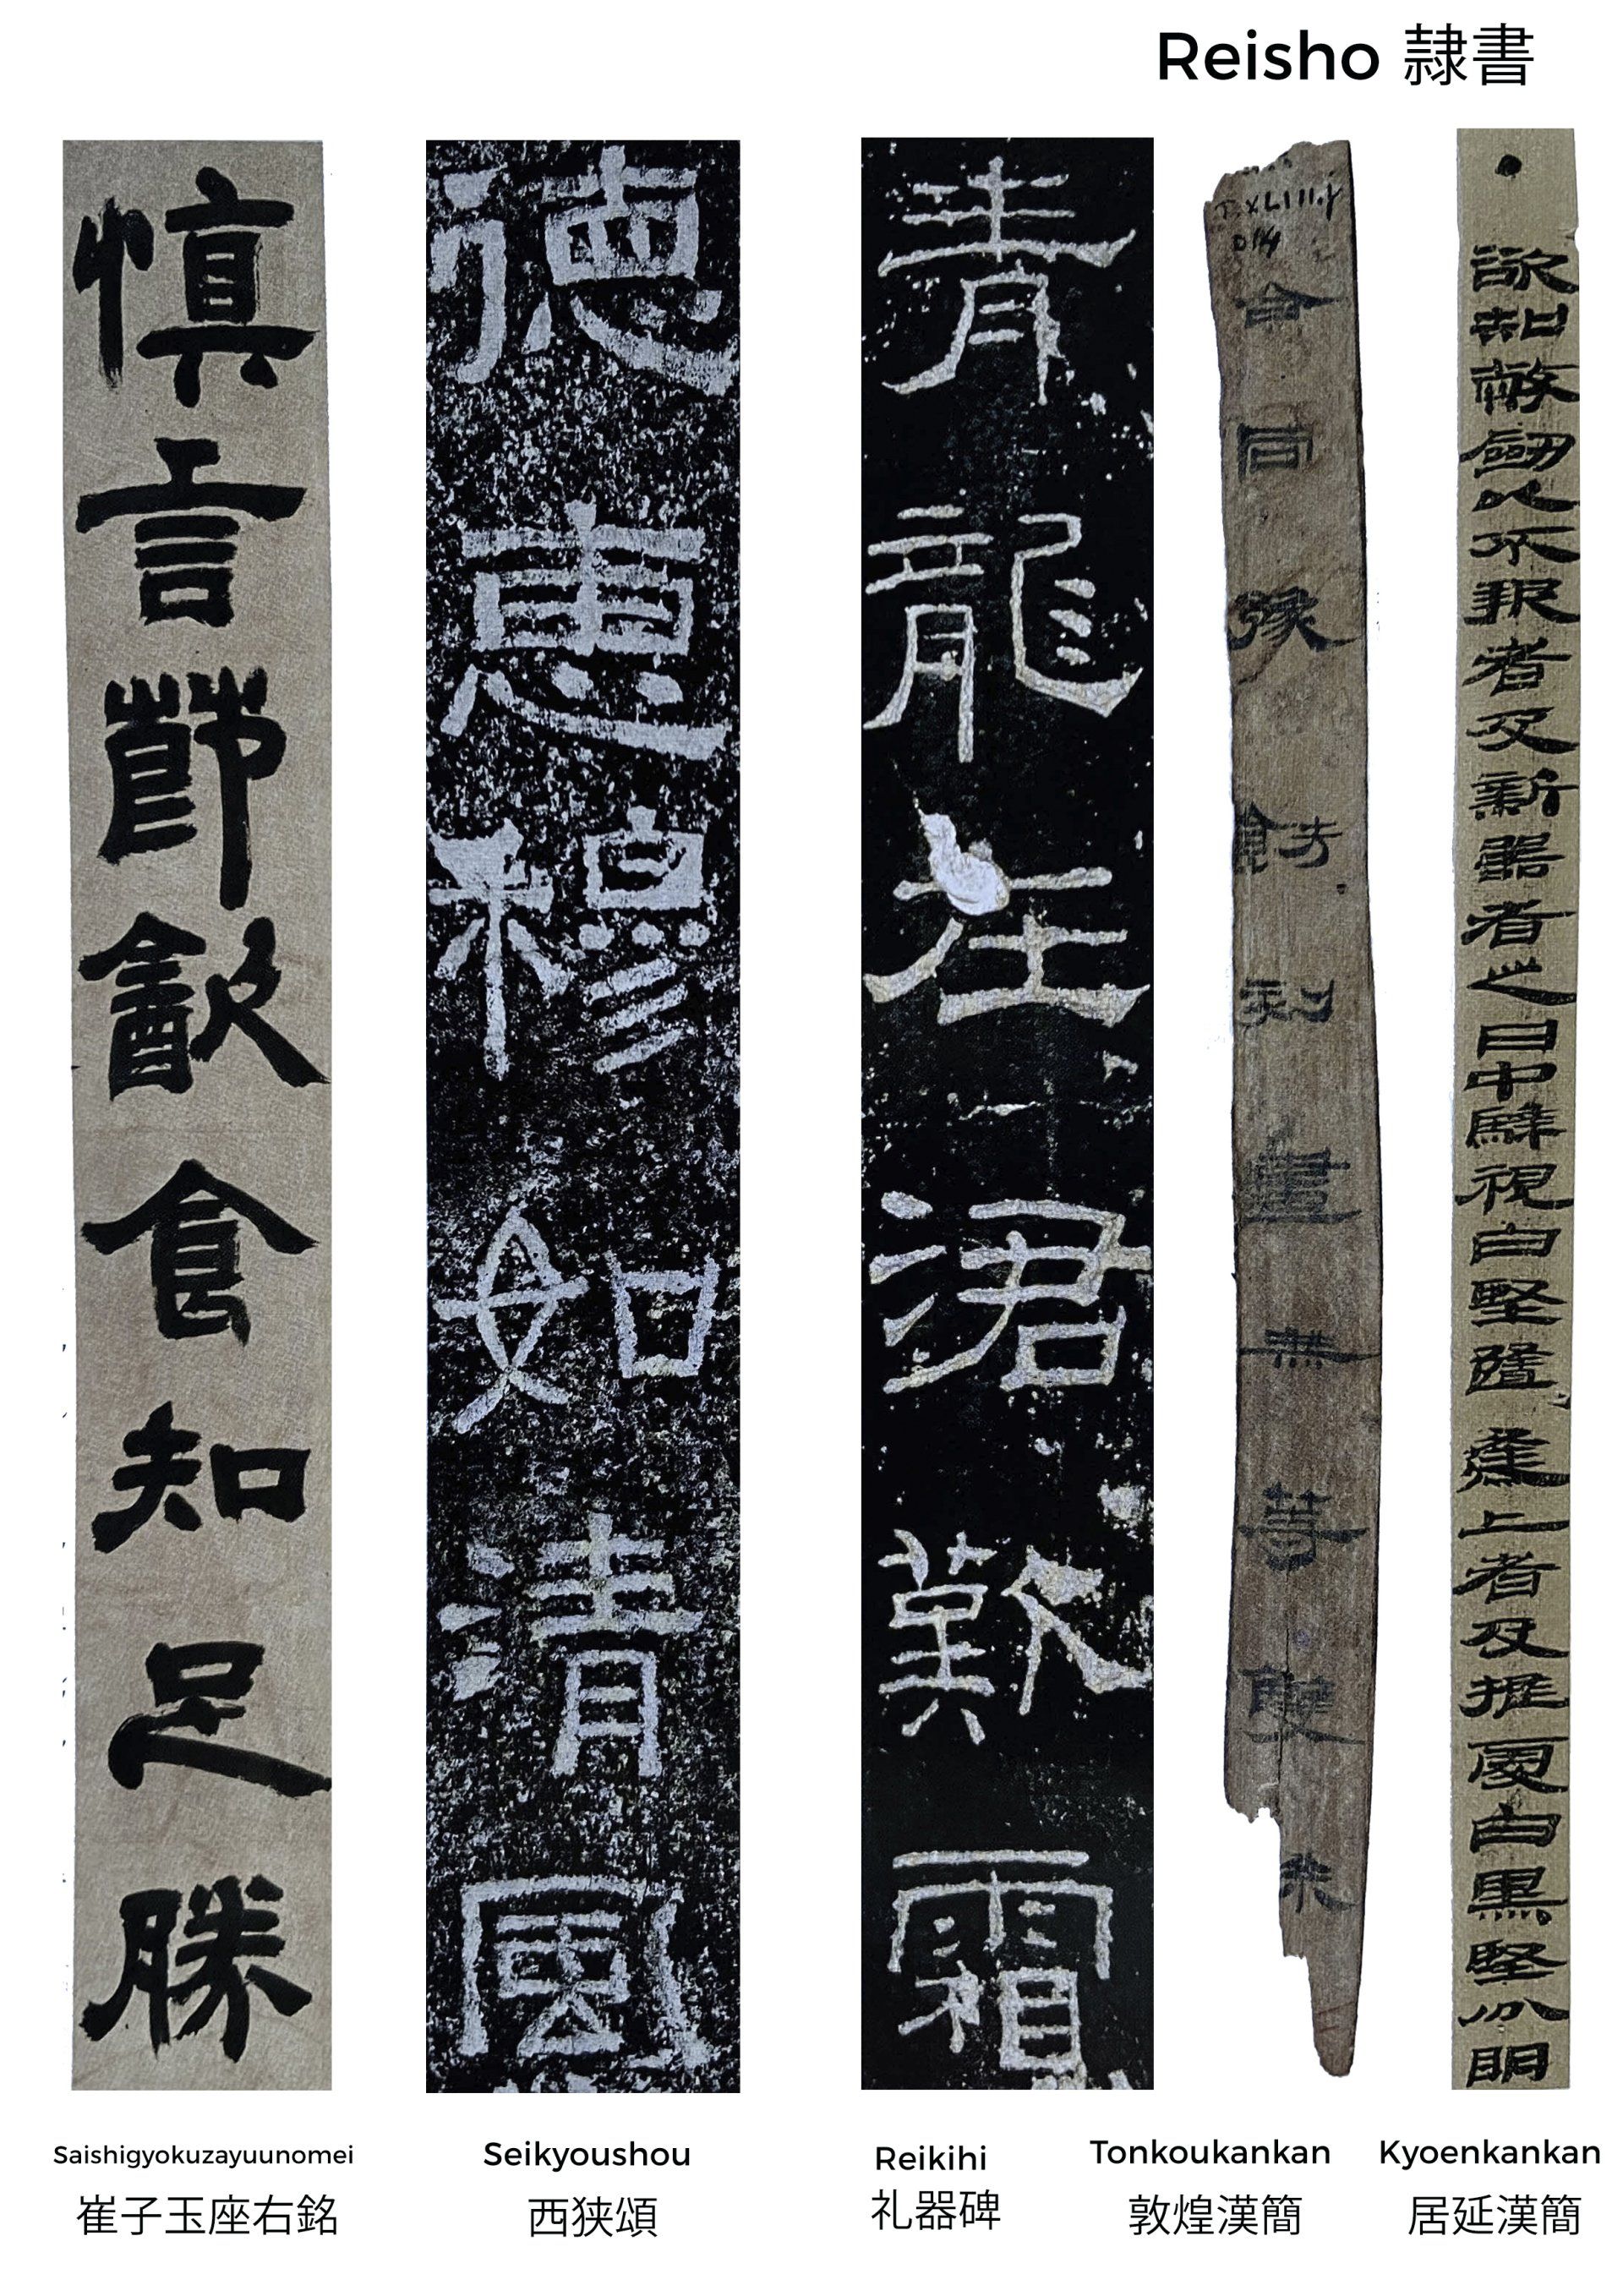 Reisho 隷書
慎言節㱃食知足勝
徳惠穆如清風
青龍在涒歎霜
合同襐飭刻畫無等雙
●欲知幣劍以不報者及新器者之日中騂視白堅隨燋上者及推處白黑堅分明
Saishigyokuzayuunomei
崔子玉座右銘
Seikyoushou
西狭頌
Reikihi
礼器碑
Tonkoukankan
敦煌漢簡
Kyoenkankan
居延漢簡